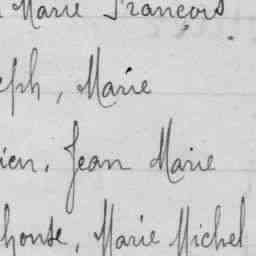 Marie François
eph, Marie
ien, Jean Marie
honse, Marie Michel